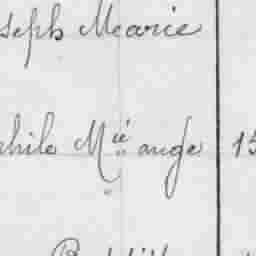 seph Marie
phile Mie ange 15